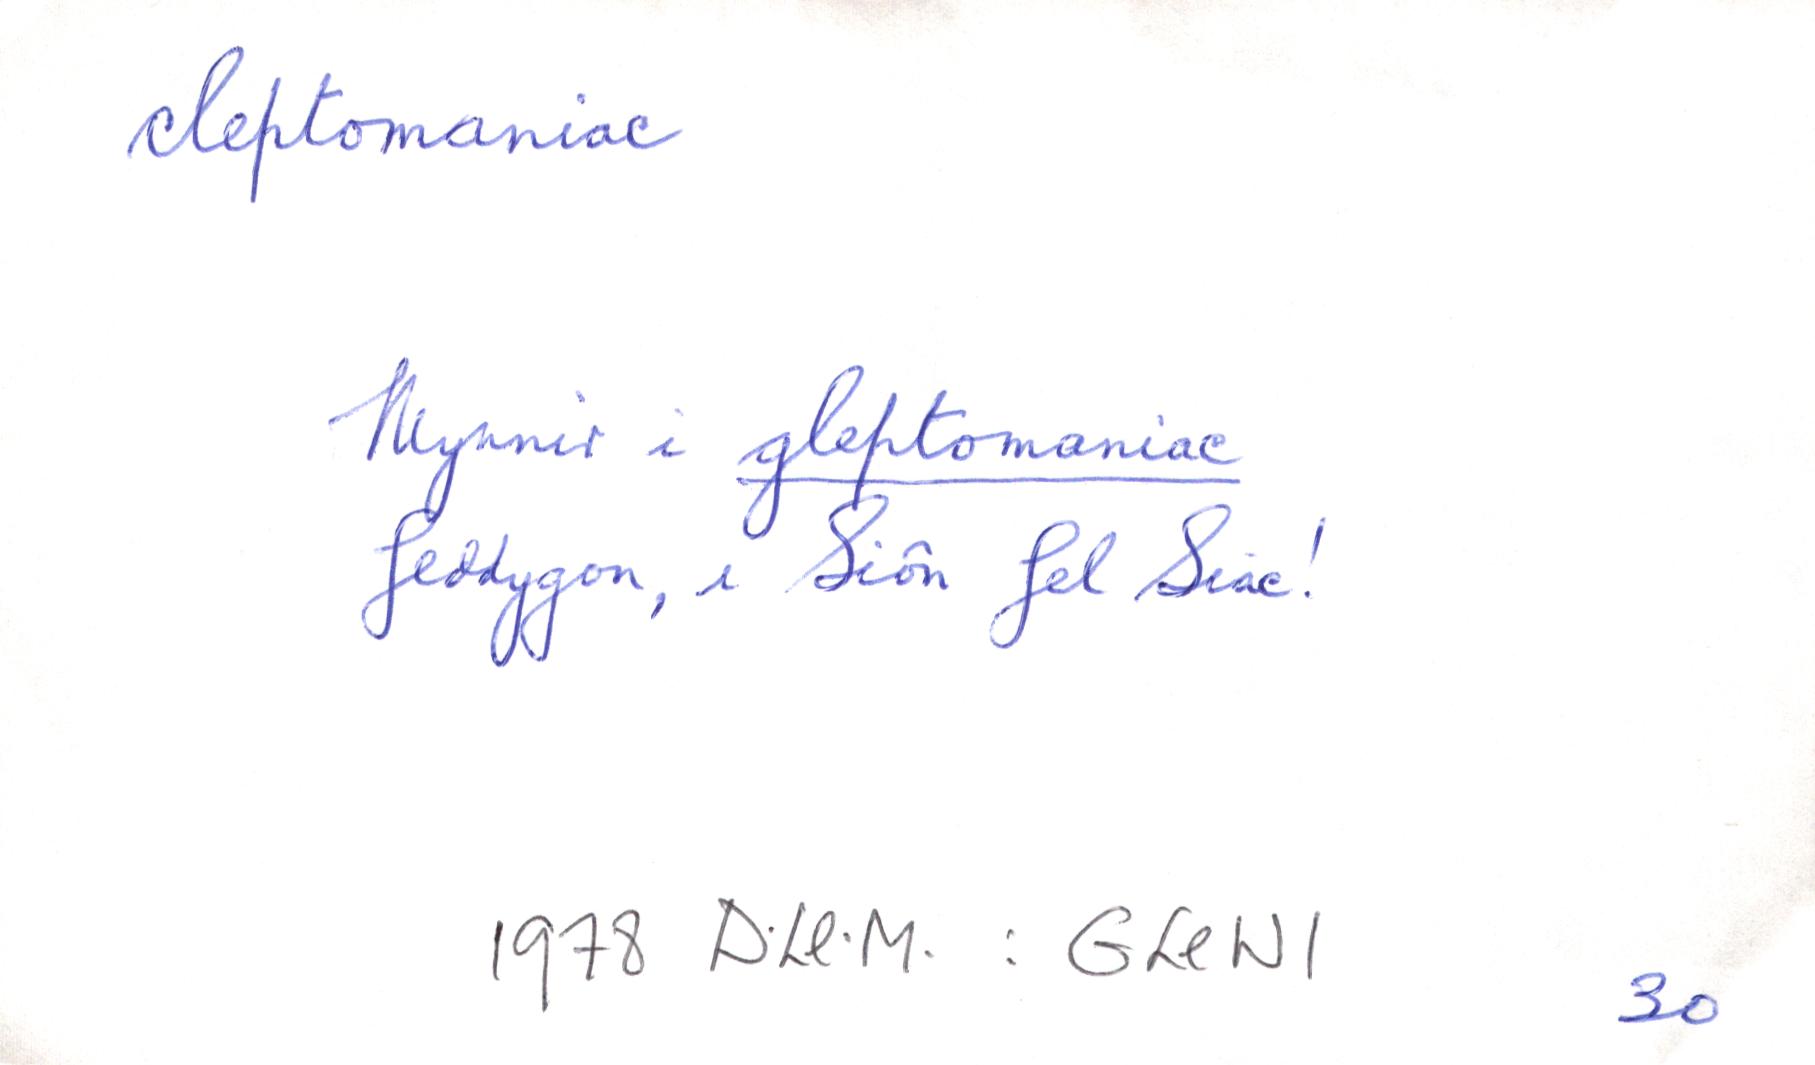 cleptomaniac
Mynnir i gleptomaniac
feddygon, i Siôn fel Siac!
1978 D.Ll.M. : GLlW1
30